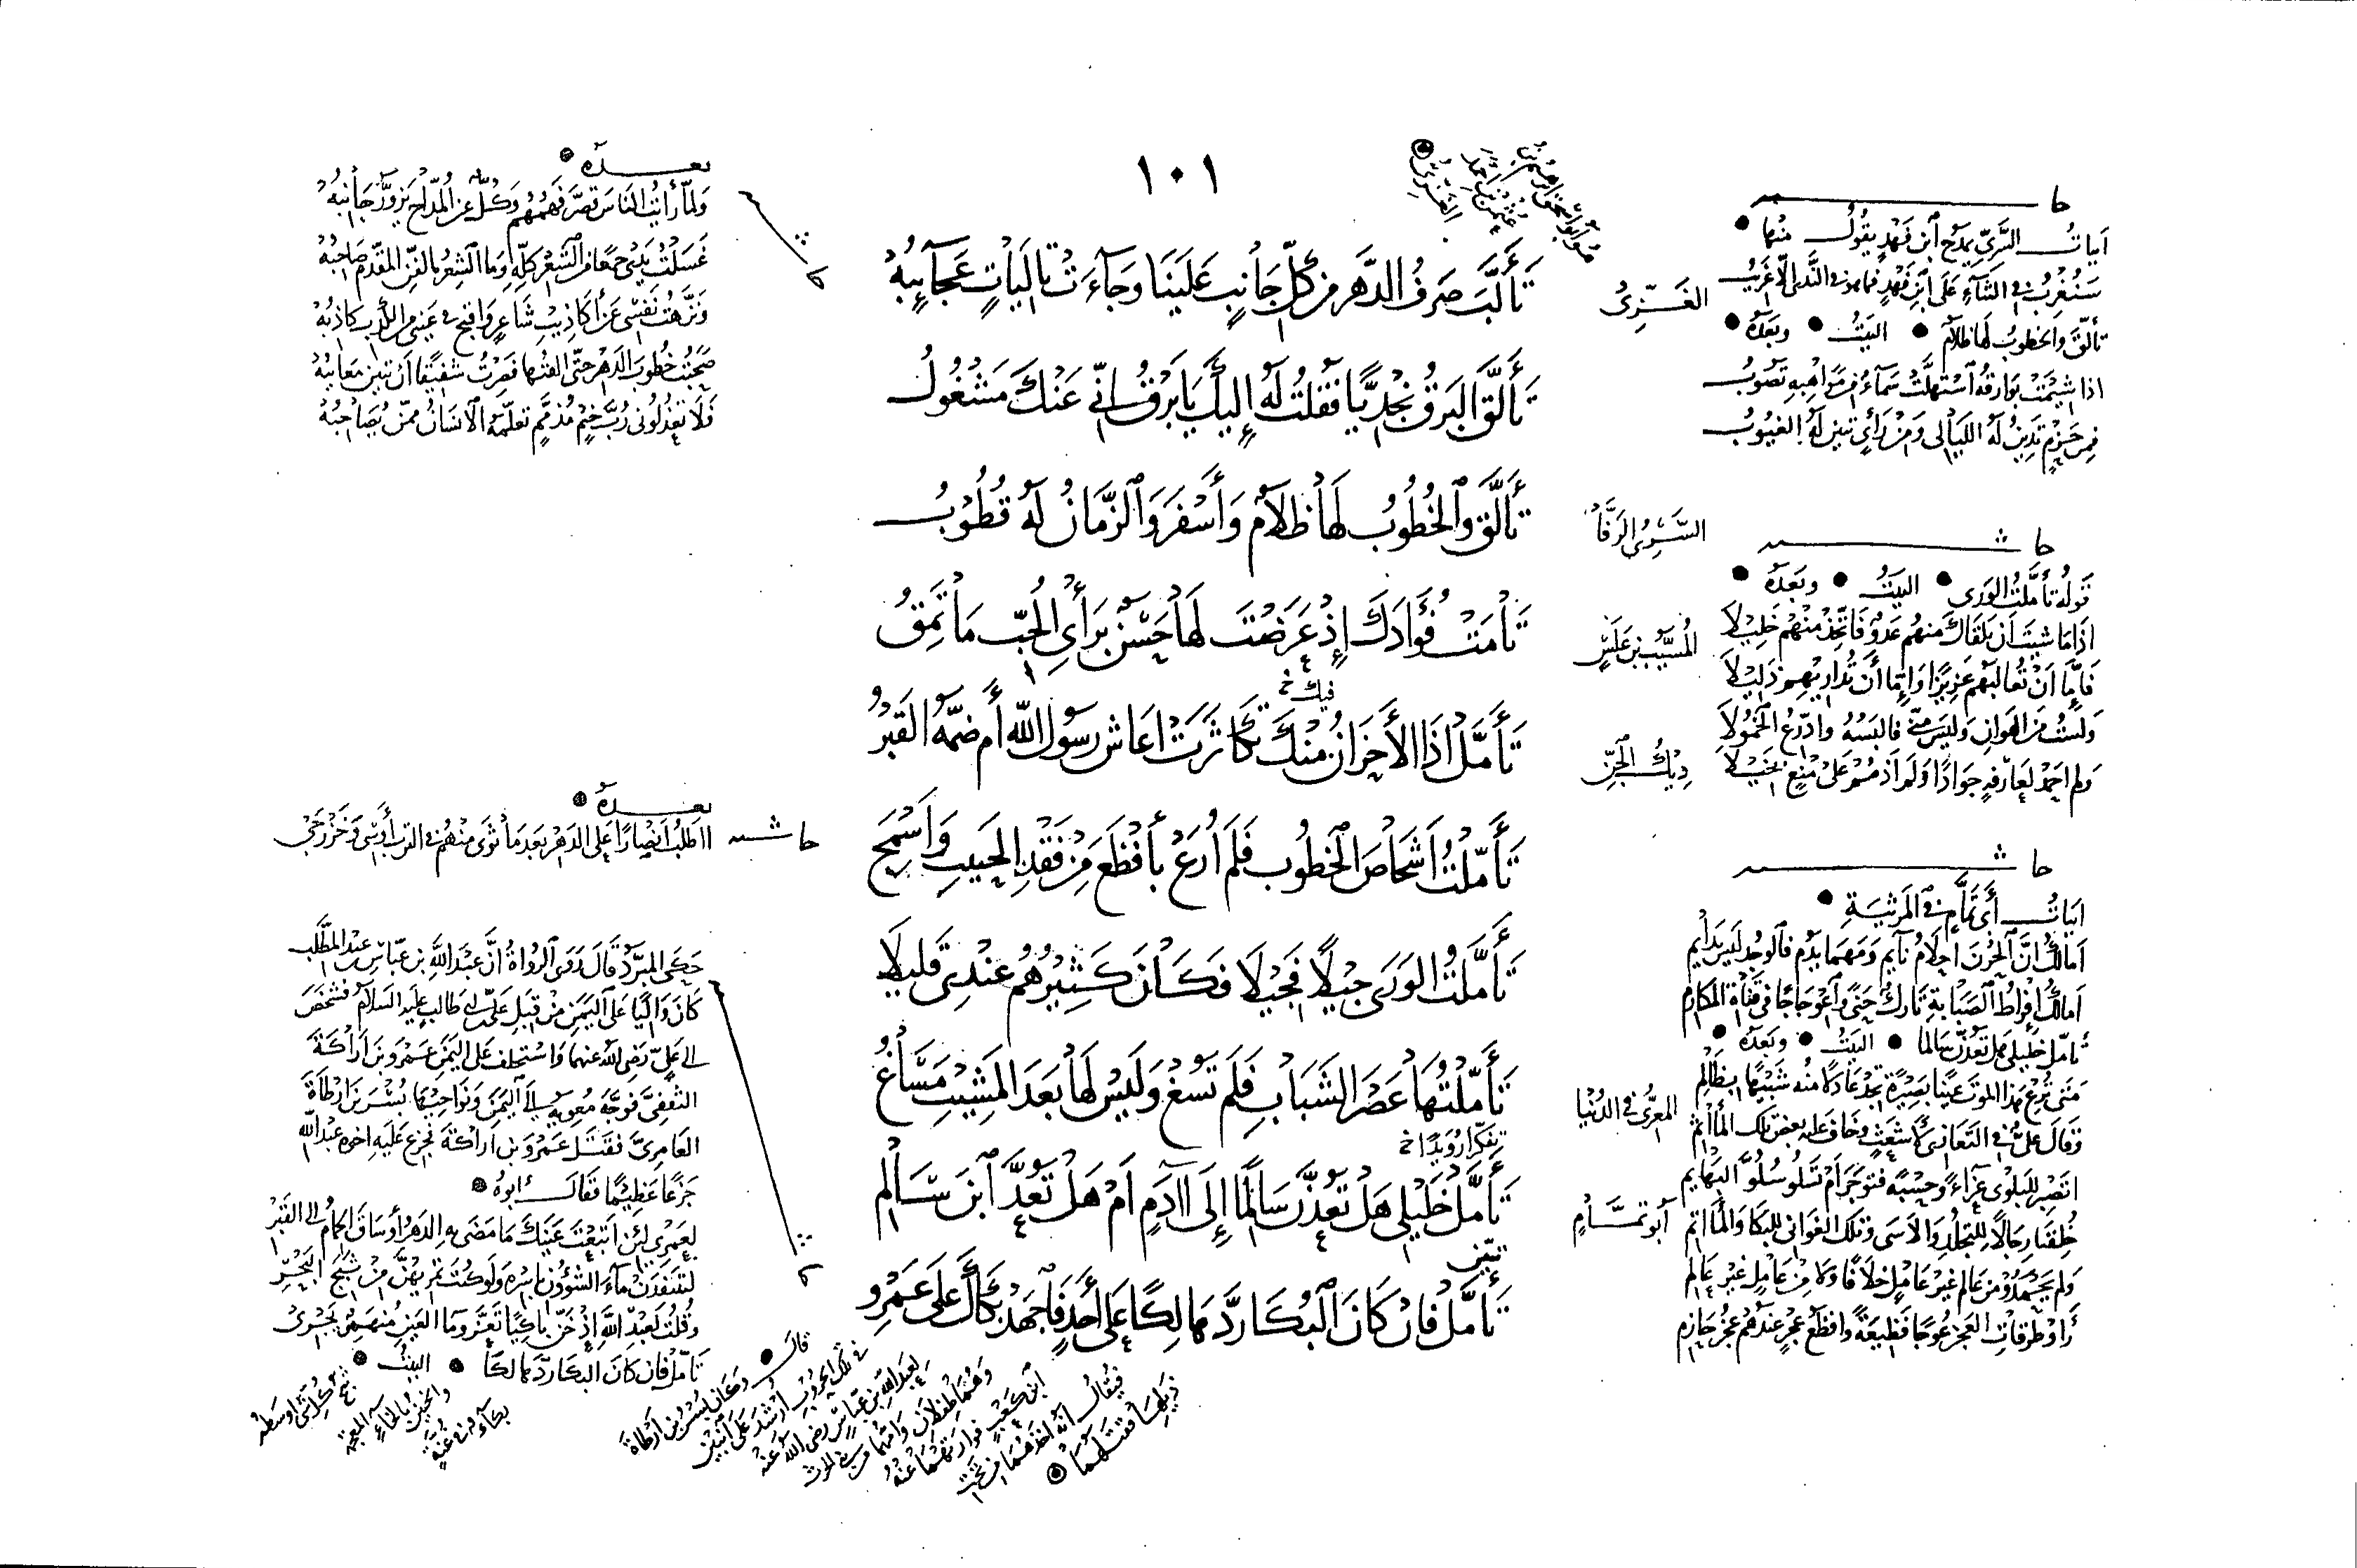 ١٠١
هو أبو إسحق إبرهيم بن
عثمن بن محمد
الغزي
تَأَلَّبَ صَرفُ الدَّهرِ من كُلِّ جَانِبٍ عَلَينَا وَجَآءَتْ بِاللَيَاتِ عَجَآئِبُهُ
تَأَلَّقَ البَرقُ نَجْدِيًّا فَقُلتُ لَهُ إِلَيكَ يَا بَرْقُ إنّي عَنْكَ مَشْغُولُ
تَأَلَّقَ وَالخُطُوبُ لَهَا ظَلَامٌ وَأَسْفَرَ وَالزَّمَانُ لَهُ قُطُوبُ
تَامَتْ فُؤَادَكَ إِذْ عَرَضْتَ لَهَا حَسَنٌ بِرَأيِ الحُبِّ مَا تَمِقُ
فيك خ
تَأَمَّلْ إذَا الأَحْزَانُ مِنْكَ تَكَاثَرَتْ اعَاشَ رَسُولُ اللّهِ أَم ضَمَّهُ القَبْرُ
تَأَمَّلْتُ أَشخَاصَ الخطُوبِ فَلَم أُرَعْ بأَفْظَعَ مِنْ فَقْدِ الحَبِيبِ وَأَسْمَجِ
تَأَمَّلْتُ الوَرَى جِيْلًا فَجِيْلَا فَكَانَ كَثِيْرُهُم عِنْدِي قَلِيلَا
تَأَمَّلْتُهَا عَصْرَ الشَبَابِ فَلَم تَسُغْ وَلَيسَ لَهَا بَعَدَ المَشِيْبِ مَسَاغُ
تفكّرا رويدًا خ
تَأَمَّلْ خَلِيْلِي هَلْ تَعُدَّنَّ سَالِمًا إِلَى آدَمٍ أَمْ هَلْ تَعُدُّ ابنَ سَالِمِ
تبيّن
تَأَمَّلْ فَإن كَانَ البُكَا رَدَّ هَالِكًا عَلى أَحَدٍ فَاجْهَدْ بُكَاكَ عَلَى عَمْرِو
الغَزِّيُ
السَّرِيُ الرَفَّا
المُسَيَّب بن عَلَسٍ
دِيْكُ الجِنِّ
المعرِّي في الدُنْيَا
أبو تمَّام
حا
ابيَاتُ السَّرِيِّ يمدَح ابن فَهْدٍ يقُولُ منها
سَنُغْرِبُ في الثَنَآءِ عَلَى ابنِ فَهْدٍ فما هو في النَّدَى إلّا غَرِيْبُ
تألّقَ والخطُوبُ لَهَا ظلامٌ البَيتُ وبَعْدَهُ
اذا شِيْمَتْ بَوَارِقُهُ اسْتَهلَّتْ سَمَآءٌ مِن مَوَاهِبِهِ تَصُوبُ
فمِن حَزْمٍ تَدِينُ لَهُ الليَالي وَمن رَأيٍ تَبِينُ لَهُ الغيُوبُ
حاشـ
قَولُهُ تَأَمَّلتُ الوَرَى البَيتُ وبَعدَهُ
اذَا مَا شِيتَ أَن يَلقَاكَ مِنهُم عَدُوٌّ فَاتَّخِذْ مِنْهُم خَلِيْلا
فَإمَّا أنْ تُعَالبَهم عَزِيْزًا وَإِمَّا أَن تُدَارِيَهم ذَليْلا
وَلَستُ مِنَ الهَوانِ وَليسَ منّي فألبَسُهُ وأدَّرِعُ الخُمُولا
ولم أحمدْ لِعَارِفَةٍ جَوَادًا وَلَم أذمُمْ عَلَى مَنْعٍ بَخِيْلا
حاشـ
ابيَاتُ أَبي تَمَّامٍ في المَرثيَةِ
أمَالكُ إنَّ الحُزْنَ أحْلَامُ نَآيِمٍ وَمَهمَا يَدُم فَالوَجْدُ لَيسَ بِدَآيمِ
أمَالكُ إفرَاطُ الصَبَابَةِ تَارِكٌ حِنًى وَاعْوِجَاجًا في قَنَاةِ المكَارِمِ
تأمَّل خَليلي هَل تَعُدَّنَّ سَالِمًا البَيتُ وبَعدَهُ
مَتَى تُرعِ هَذَا الموتَ عَينًا بَصِيْرَةً تَجِدْ عَادِلًا مِنْهُ شَبِيْهًا بِظَالِمِ
وَقَالَ عَلِيٌّ في التَعَازِي لأَشْعَثٍ وخَافَ عَلَيه بعض تلك المآثمِ
اتَصْبِرُ للبَلْوَى عَزَآءً وحِسْبَةً فتؤجَرَ أمْ تَسلُو سُلُوَّ البَهَايمِ
خُلِقْنَا رِجَالًا للتَجَلُّدِ والأسَى وتلكَ الغَوَاني للبُكَا وَالمآتمِ
وَلَم يَحمدُوا مِن عَالِمٍ غَيْرِ عَامِلٍ خِلافًا ولا مِنْ عَامِلٍ غَيْرِ عَالِمِ
رَأوا طُرقَاتِ العَجْزِ عُوجًا فَظِيعَةً وافظَعُ عَجزٍ عندَهُم عَجزُ حَازِمِ
بعـــدهُ
وَلمّا رَأيتُ النَاسَ قَصَّرَ فَهمُهُم وَكُلٌّ عن المُدَّاحِ يَزوَرُّ جَانِبُهْ
غَسَلتُ يَدَيَّ جمعًا من الشِّعْرِ كُلِّهِ وما الشِعرُ بالفَنِّ المقَدَّمِ صَاحِبُهْ
وَنَزَّهتُ نَفْسِي عَن أكَاذِيبِ شَاعِرٍ وَاقبحُ في عَيني من الكِذْبِ كاذِبُهْ
صَحِبتُ خُطُوبَ الدَهْرِ حتّى ألفتُها فصِرتُ شَفيقًا أن تَبينَ مَعَايبُهْ
فَلَا تعذلُوني رُبَّ خِيْمٍ مُذَمَّمٍ تَعَلَّمَهُ الانسَانُ ممّن يُصَاحبُهْ
حاشـ
بعـــدهُ
أاطلبُ أنصَارًا عَلى الدَهْرِ بَعدَ مَا ثَوَى مِنْهُمُ في التُربِ أوسِي وَخَزْرَجِي
حَكَى المبرّدُ قَالَ رَوَى الرُواةُ أنَّ عَبْدَ اللَّهِ بن عبّاسِ بن عبد المطَّلب
كَانَ وَاليًا عَلَى اليَمَنِ مِنْ قِبَلِ عَليّ بن أبي طَالبٍ عليه السَلامُ فَشَخَصَ
إلى عَليٍّ رَضي الله عنهما وَاسْتخلف عَلَى اليَمَنِ عَمْرو بنَ أرَاكَةَ
الثَقَفيَّ فوَجَّهَ مُعَوِيَةُ إلى اليَمَنِ وَنَواحِيْهَا بُسْرَ بنَ أرطَاةَ
العَامِريَّ فَقَتَلَ عَمْرَو بن أرَاكَةَ فجَزِعَ عَلَيهِ أخوه عبدُ اللّه
جَزَعًا عَظِيْمًا فَقَالَ أبوهُ
لعَمْرِي لَئِن اتبَعْتَ عَيْنَكَ مَا مَضَى بِهِ الدَهْرُ أو سَاقَ الحِمَامُ إلى القَبْرِ
لتَسْتَنفِدَنْ مَآءَ الشؤُونِ بأسْرِهِ وَلَو كُنْتَ تَمريهُنَّ مِنْ ثَبَجِ البَحْرِ
وقُلتُ لعَبْدِ اللَّهِ إذْ خَنَّ بَاكيًا تَعَزَّ ومآ العَينِ مُنْهَمِرٌ يَجْرِي
تَأمَّل فَإن كَانَ البُكَا رَدَّ هَالكًا البَيتُ
والخنينُ بالخاءِ المعجمة
بكآءٌ في غُنّةٍ
ثبَجُ كُلِّ شَيءٍ أوسَطُهُ
قالَ وكان بسْرُ بن أرطَاةَ
في تلك الحروب أرشدَ عَلَى ابنَين
لعَبدِ اللّهِ بن عبّاسٍ رضي اللَّهُ عنه
وَهُمَا طفلَانِ وَأمُّهما من بني الحرث
ابن كَعْبٍ فوارَتهُمَا عَنْهُ
فيُقَالُ أنَّهُ أخَذَهُمَا من تحتِ
ذيلِهَا فقتَلَهُمَا